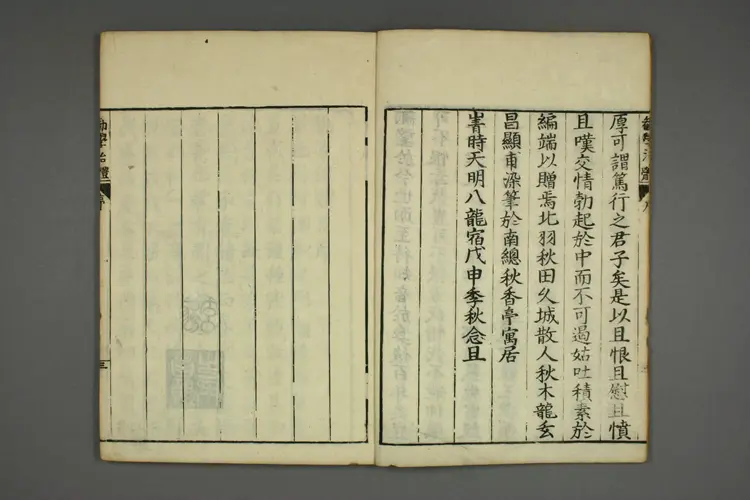 厚可謂篤行之君子矣是以且恨且慰且憤
且嘆交情勃起於中而不可遏姑吐積素於
編端以贈焉北羽秋田久城散人秋木龍玄
昌顯甫染筆於南總秋香亭寓居
旹時天明八龍宿戊申季秋念且
序
三